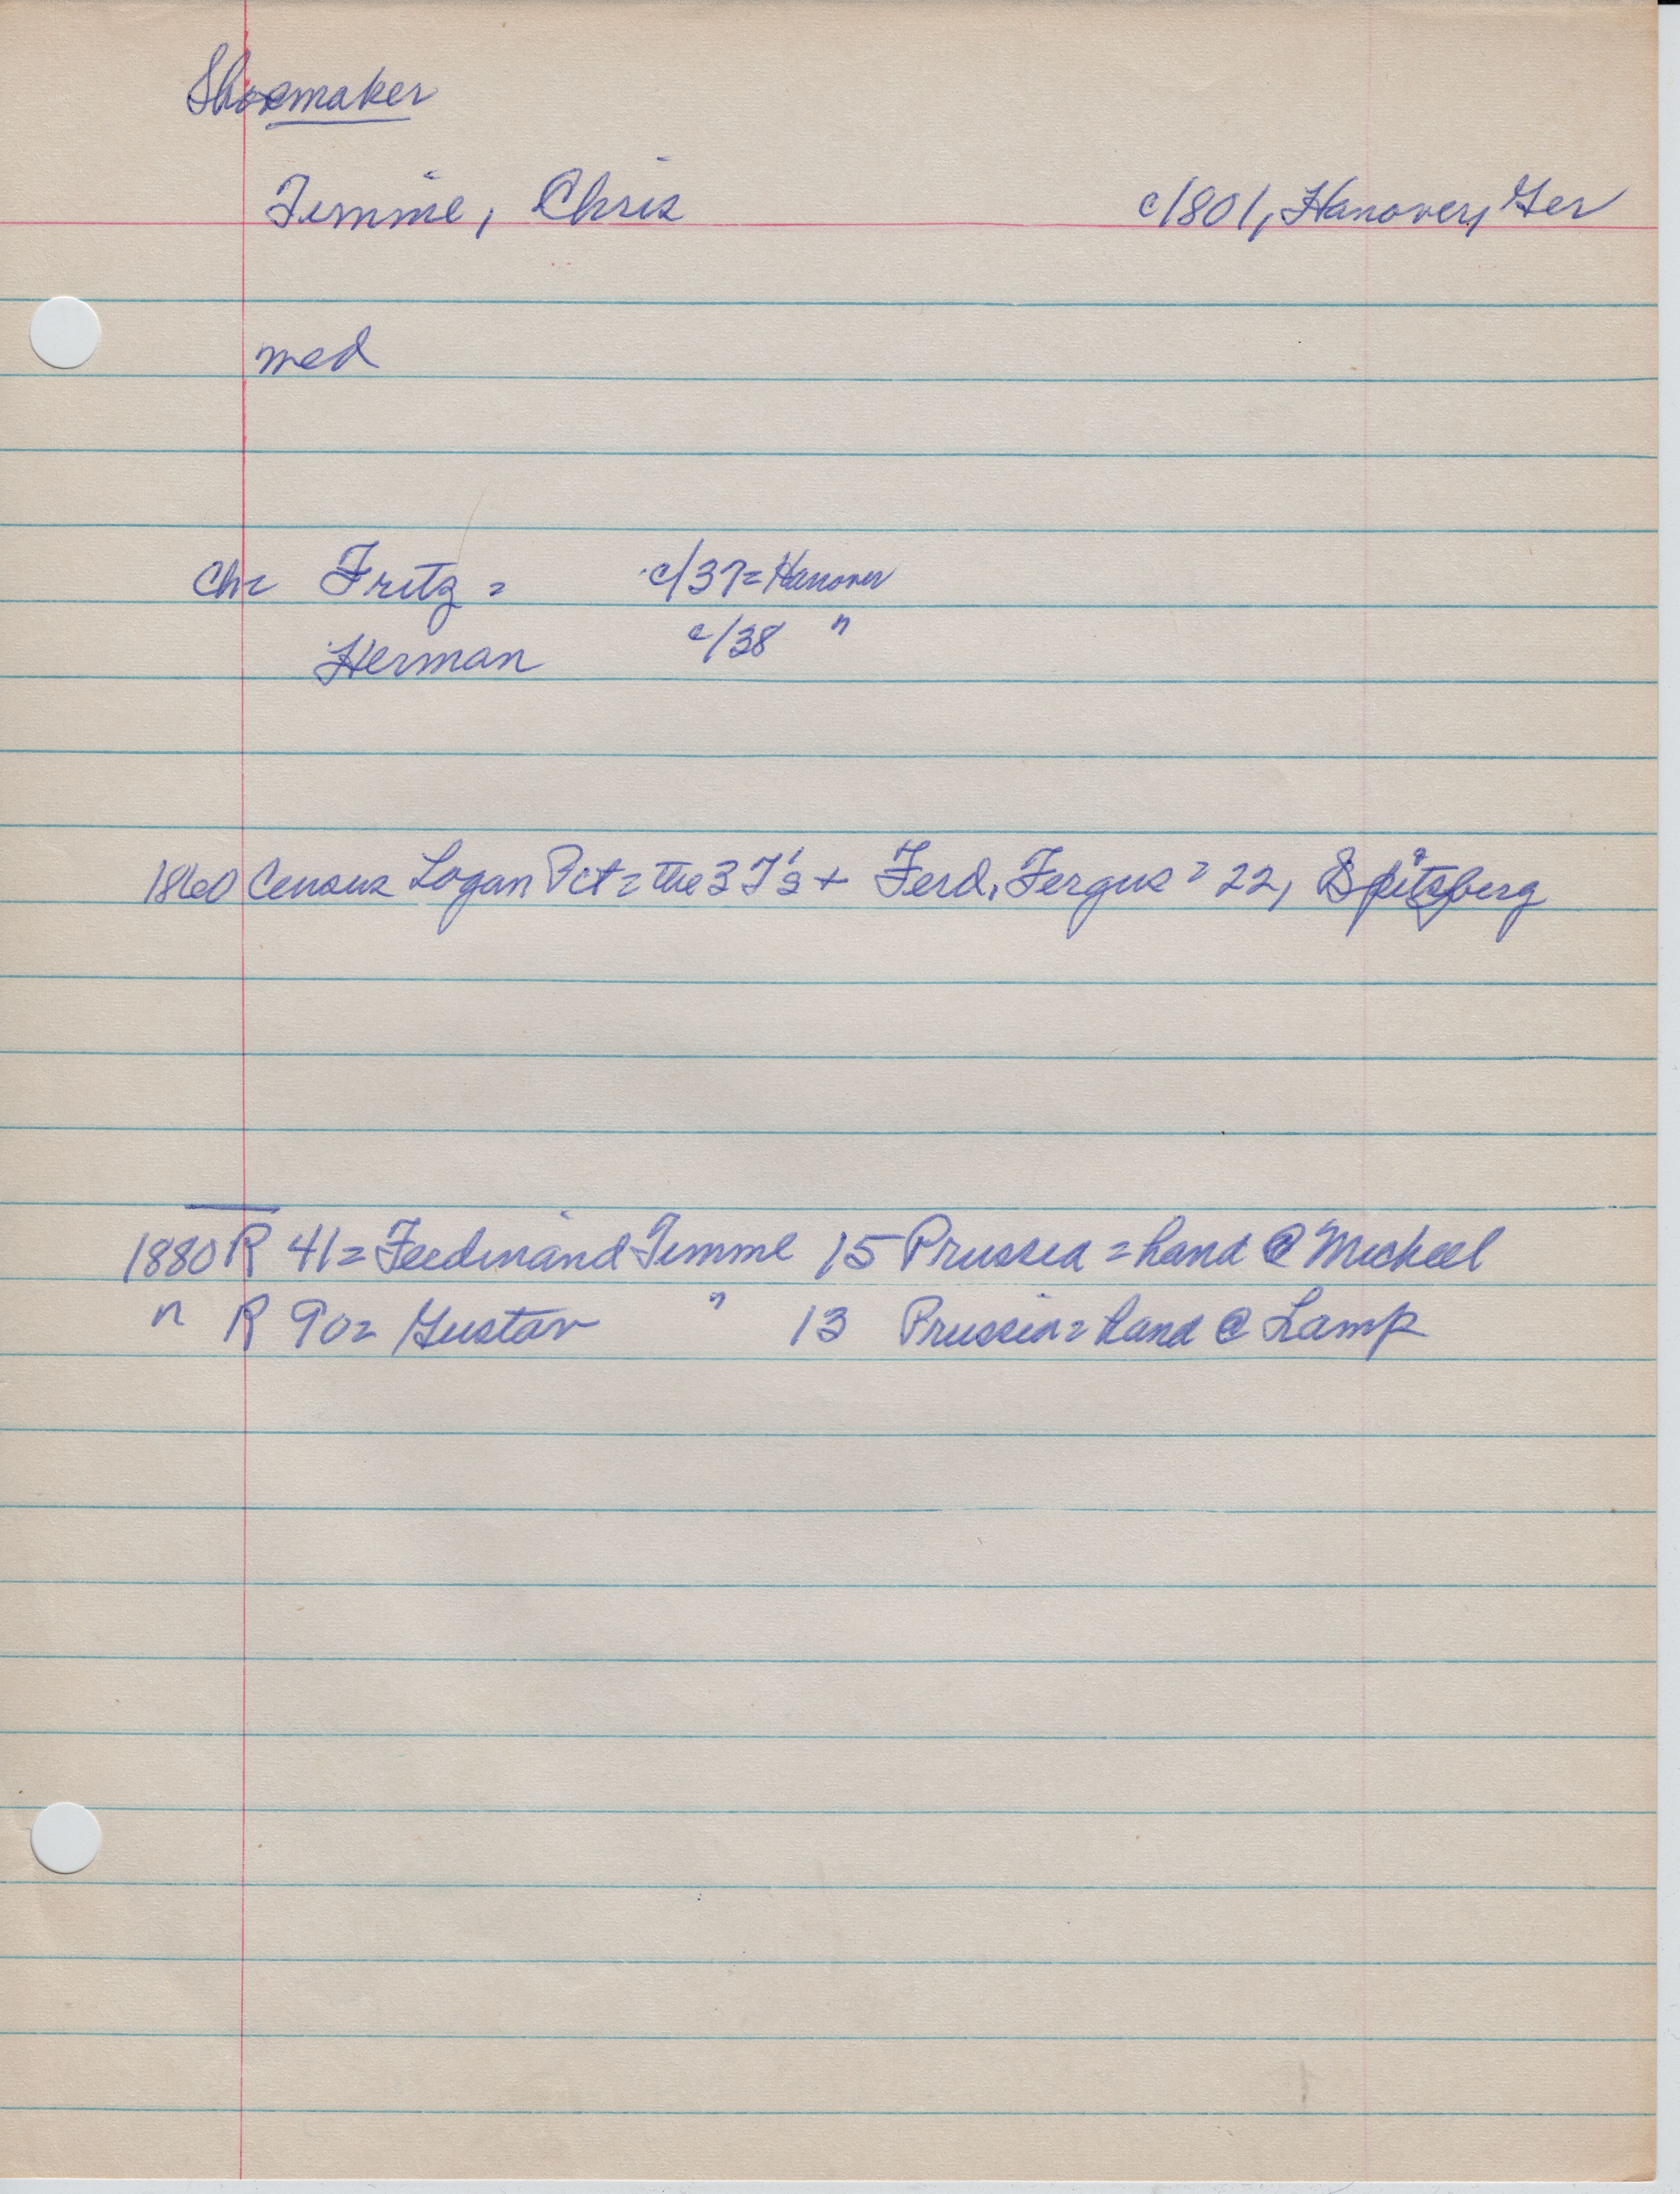 Shoemaker
Timme, Chris c/1801, Hanover, Ger
med
Ch= Fritz = c/37= Hanover
Herman c/38 "
1860 Census Logan Pct = the 3 T's + Ferd. Fergus = 22, Spitzberg
1880 R 41= Ferdinand Timme 15 Prussia = hand @ Mickeel
" R 90= Gustav " 13 Prussia = hand @ Lamp